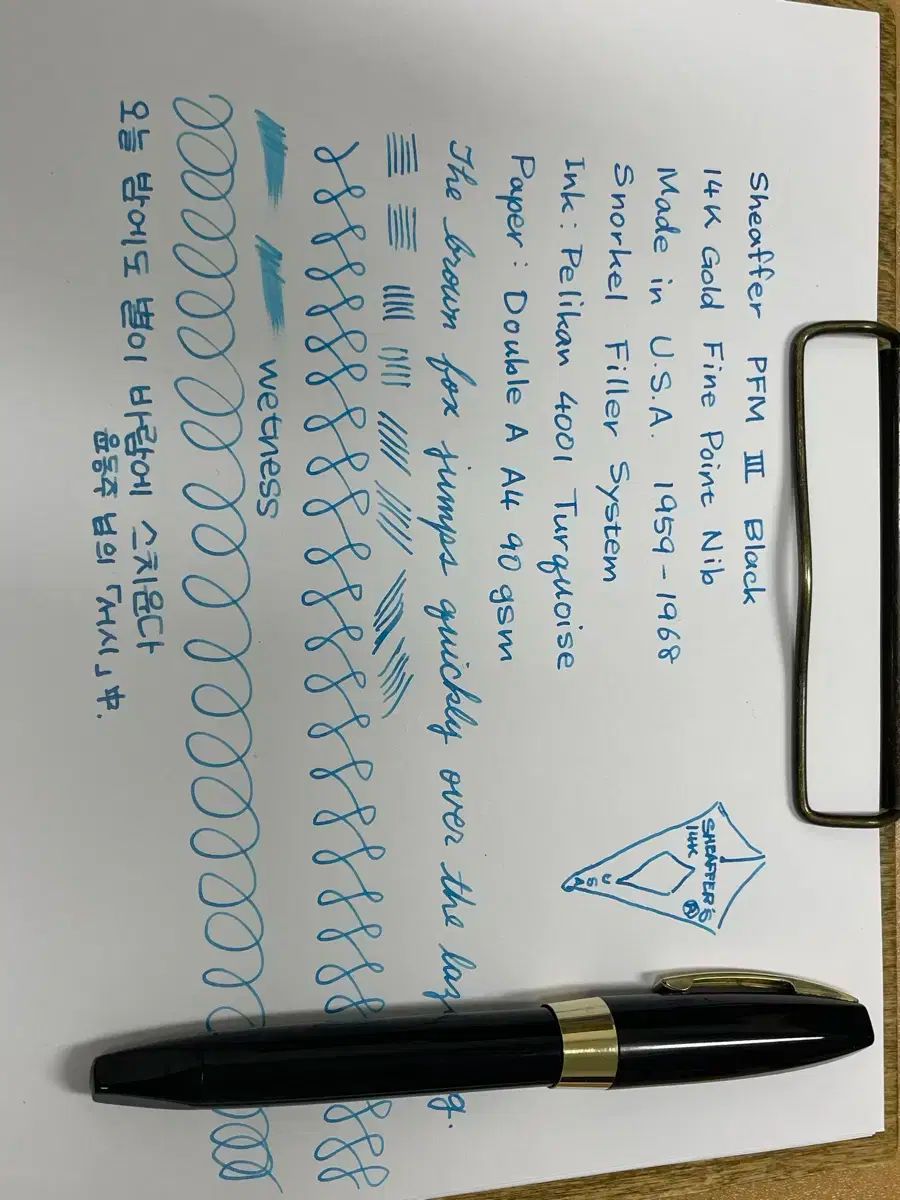 Sheaffer PFM III Black
14K Gold Fine Point Nib
Made in U.S.A. 1959-1968
Snorkel Filler System
Ink : Pelikan 4001 Turquoise
Paper : Double A A4 90 gsm
SHEAFFER'S
14K
R
U
S
A
The brown fox jumps quickly over the g.
wetness
오늘 밤에도 별이 바람에 스치운다
윤동주 님의 「서시」 中.